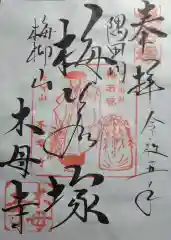 奉拝
令和五年
隅田川
梅若塚
梅柳山
木母寺